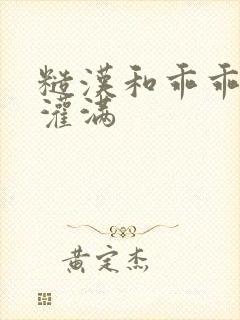 糙漢和乖乖
灌滿
黃定杰